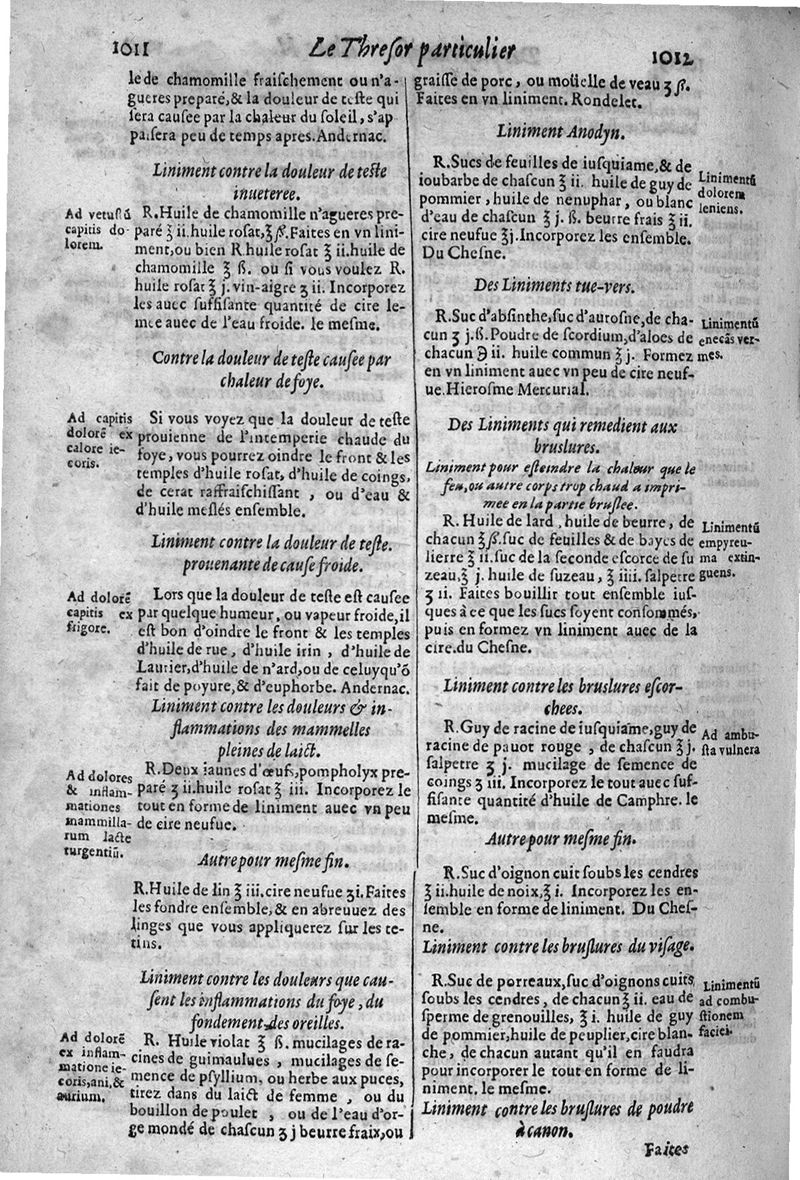 1011
Le Threſor particulier
1012
le de chamomille fraiſchement ou n'a-
gueres preparé,& la douleur de teſte qui
ſera cauſee par la chaleur du ſoleil, s'ap
paiſera peu de temps apres. Andernac.
Liniment contre la douleur de teſte
inueteree.
Ad vetuſtū
capitis do-
lorem.
R. Huile de chamomille n'agueres pre-
paré ℥ ii. huile roſat,℥ß. Faites en vn lini-
ment,ou bien R huile roſat ℥ ii.huile de
chamomille ℥ ß. ou ſi vous voulez R.
huile roſat ℥ j. vin-aigre ʒ ii. Incorporez
les auec ſuffiſante quantité de cire le-
mee auec de l'eau froide. le meſme.
Contre la douleur de teſte cauſee par
chaleur de foye.
Ad capitis
dolorē ex
calore ie-
coris.
Si vous voyez que la douleur de teſte
prouienne de l'intemperie chaude du
foye, vous pourrez oindre le front & les
temples d'huile roſat, d'huile de coings,
de cerat raffraiſchiſſant , ou d'eau &
d'huile meſlés enſemble.
Liniment contre la douleur de teſte.
prouenante de cauſe froide.
Ad dolorē
capitis ex
frigore.
Lors que la douleur de teſte eſt cauſee
par quelque humeur, ou vapeur froide, il
eſt bon d'oindre le front & les temples
d'huile de rue , d'huile irin , d'huile de
Laurier,d'huile de n'ard,ou de celuyqu'ō
fait de poyure,& d'euphorbe. Andernac.
Liniment contre les douleurs & in-
flammations des mammelles
pleines de laict.
Ad dolores
& inflam-
mationes
mammilla-
rum lacte
turgentiū.
R. Deux iaunes d'œufs,pompholyx pre-
paré ʒ ii.huile roſat ℥ iii. Incorporez le
tout en forme de liniment auec vn peu
de cire neufue.
Autre pour meſme fin.
R. Huile de lin ℥ iii.cire neufue ʒi. Faites
les fondre enſemble,& en abreuuez des
linges que vous appliquerez ſur les te-
tins.
Liniment contre les douleurs que cau-
ſent les inflammations du foye, du
fondement des oreilles.
Ad dolorē
ex inflam-
matione ie-
coris,ani,&
aurium.
R. Huile violat ℥ ß. mucilages de ra-
cines de guimaulues , mucilages de ſe-
mence de pſyllium, ou herbe aux puces,
tirez dans du laict de femme , ou du
bouillon de poulet , ou de l'eau d'or-
ge mondé de chaſcun ʒ j beurre fraix,ou
graiſſe de porc, ou moüelle de veau ʒ ß.
Faites en vn liniment. Rondelet.
Liniment Anodyn.
R. Sucs de feuilles de iuſquiame,& de
ioubarbe de chaſcun ℥ ii. huile de guy de
pommier , huile de nenuphar, ou blanc
d'eau de chaſcun ℥ j. ß. beurre frais ℥ ii.
cire neufue ℥j. Incorporez les enſemble.
Du Cheſne.
Linimentū
dolorem
leniens.
Des Liniments tue-vers.
R. Suc d'abſinthe,ſuc d'auroſne,de cha-
cun ʒ j.ß. Poudre de ſcordium,d'aloes de
chacun ℈ ii. huile commun ℥ j. Formez
en vn liniment auec vn peu de cire neuf-
ue. Hieroſme Mercurial.
Linimentū
enecās ver-
mes.
Des Liniments qui remedient aux
bruslures.
Liniment pour eſteindre la chaleur que le
feu, ou autre corps trop chaud a impri-
mee en la partie bruſlee.
R. Huile de lard , huile de beurre, de
chacun ℥ß. ſuc de feuilles & de bayes de
lierre ℥ ii. ſuc de la ſeconde eſcorce de ſu
zeau,℥ j. huile de ſuzeau, ℥ iiii. ſalpetre
ʒ ii. Faites bouillir tout enſemble iuſ-
ques à ce que les ſucs ſoyent conſommés,
puis en formez vn liniment auec de la
cire.du Cheſne.
Linimentū
empyreu-
ma extin-
guens.
Liniment contre les bruslures eſcor-
chees.
R. Guy de racine de iuſquiame, guy de
racine de pauot rouge , de chaſcun ℥ j.
ſalpetre ʒ j. mucilage de ſemence de
coings ʒ iii. Incorporez le tout auec ſuf-
fiſante quantité d'huile de Camphre. le
meſme.
Ad ambu-
ſta vulnera
Autre pour meſme fin.
R. Suc d'oignon cuit ſoubs les cendres
℥ ii.huile de noix,℥ i. Incorporez les en-
ſemble en forme de liniment. Du Cheſ-
ne.
Liniment contre les bruſlures du viſage.
R. Suc de porreaux,ſuc d'oignons cuits
ſoubs les cendres, de chacun℥ ii. eau de
ſperme de grenouilles, ℥ i. huile de guy
de pommier,huile de peuplier,cire blan-
che, de chacun autant qu'il en faudra
pour incorporer le tout en forme de li-
niment. le meſme.
Linimentū
ad combu-
ſtionem
faciei.
Liniment contre les bruſlures de poudre
à canon.
Faites